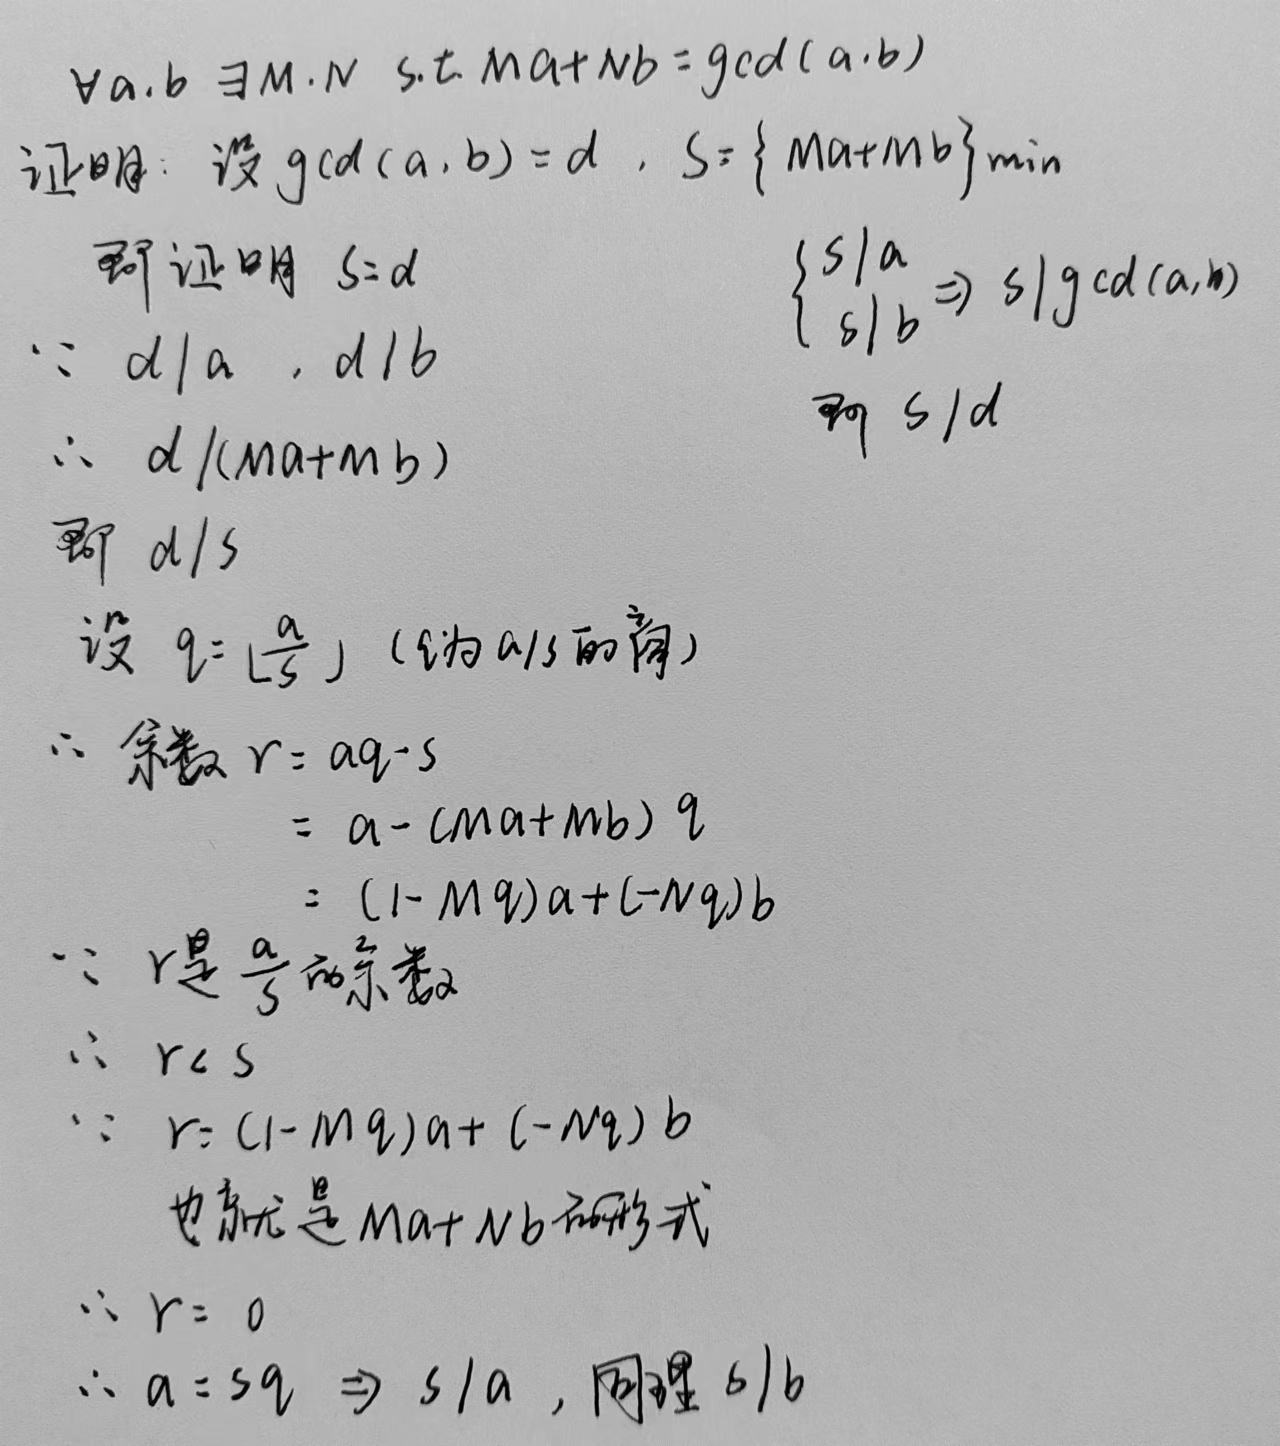 ∀a.b ∃M.N s.t. Ma+Nb=gcd(a.b)
证明: 设gcd(a,b)=d , S={Ma+Mb}min
即证明 S=d
∵ d/a , d/b
∴ d/(Ma+Mb)
即 d/s
设 q=⌊a/s⌋ (q为a/s的商)
∴ 余数 r=aq-s
= a-(Ma+Mb)q
= (1-Mq)a+(-Nq)b
∵ r是a/s的余数
∴ r<s
∵ r=(1-Mq)a+(-Nq)b
也就是Ma+Nb的形式
∴ r=0
∴ a=sq ⇒ s/a , 同理 s/b
{s/a
s/b ⇒ s/gcd(a,b)
即 s/d